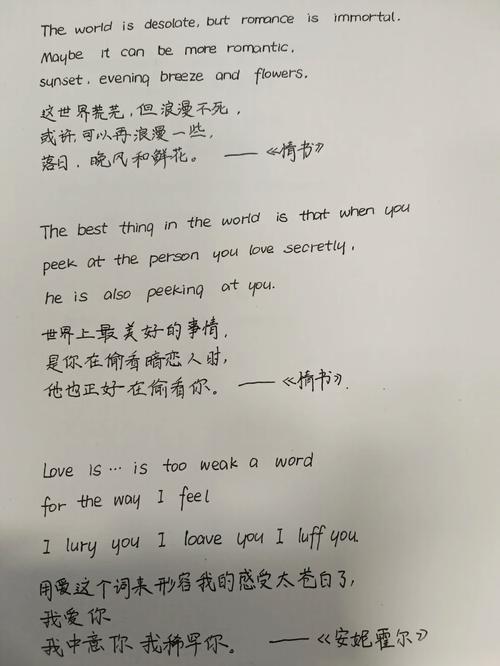 The world is desolate, but romance is immortal.
Maybe it can be more romantic,
sunset, evening breeze and flowers.
这世界荒芜，但浪漫不死，
或许,可以再浪漫一些，
落日、晚风和鲜花。 ——《情书》
The best thing in the world is that when you
peek at the person you love secretly,
he is also peeking at you.
世界上最美好的事情，
是你在偷看暗恋人时，
他也正好在偷看你。 ——《情书》.
Love is … is too weak a word
for the way I feel
I lury you I loave you I luff you.
用爱这个词来形容我的感受太苍白了，
我爱你
我中意你 我稀罕你。 ——《安妮霍尔》